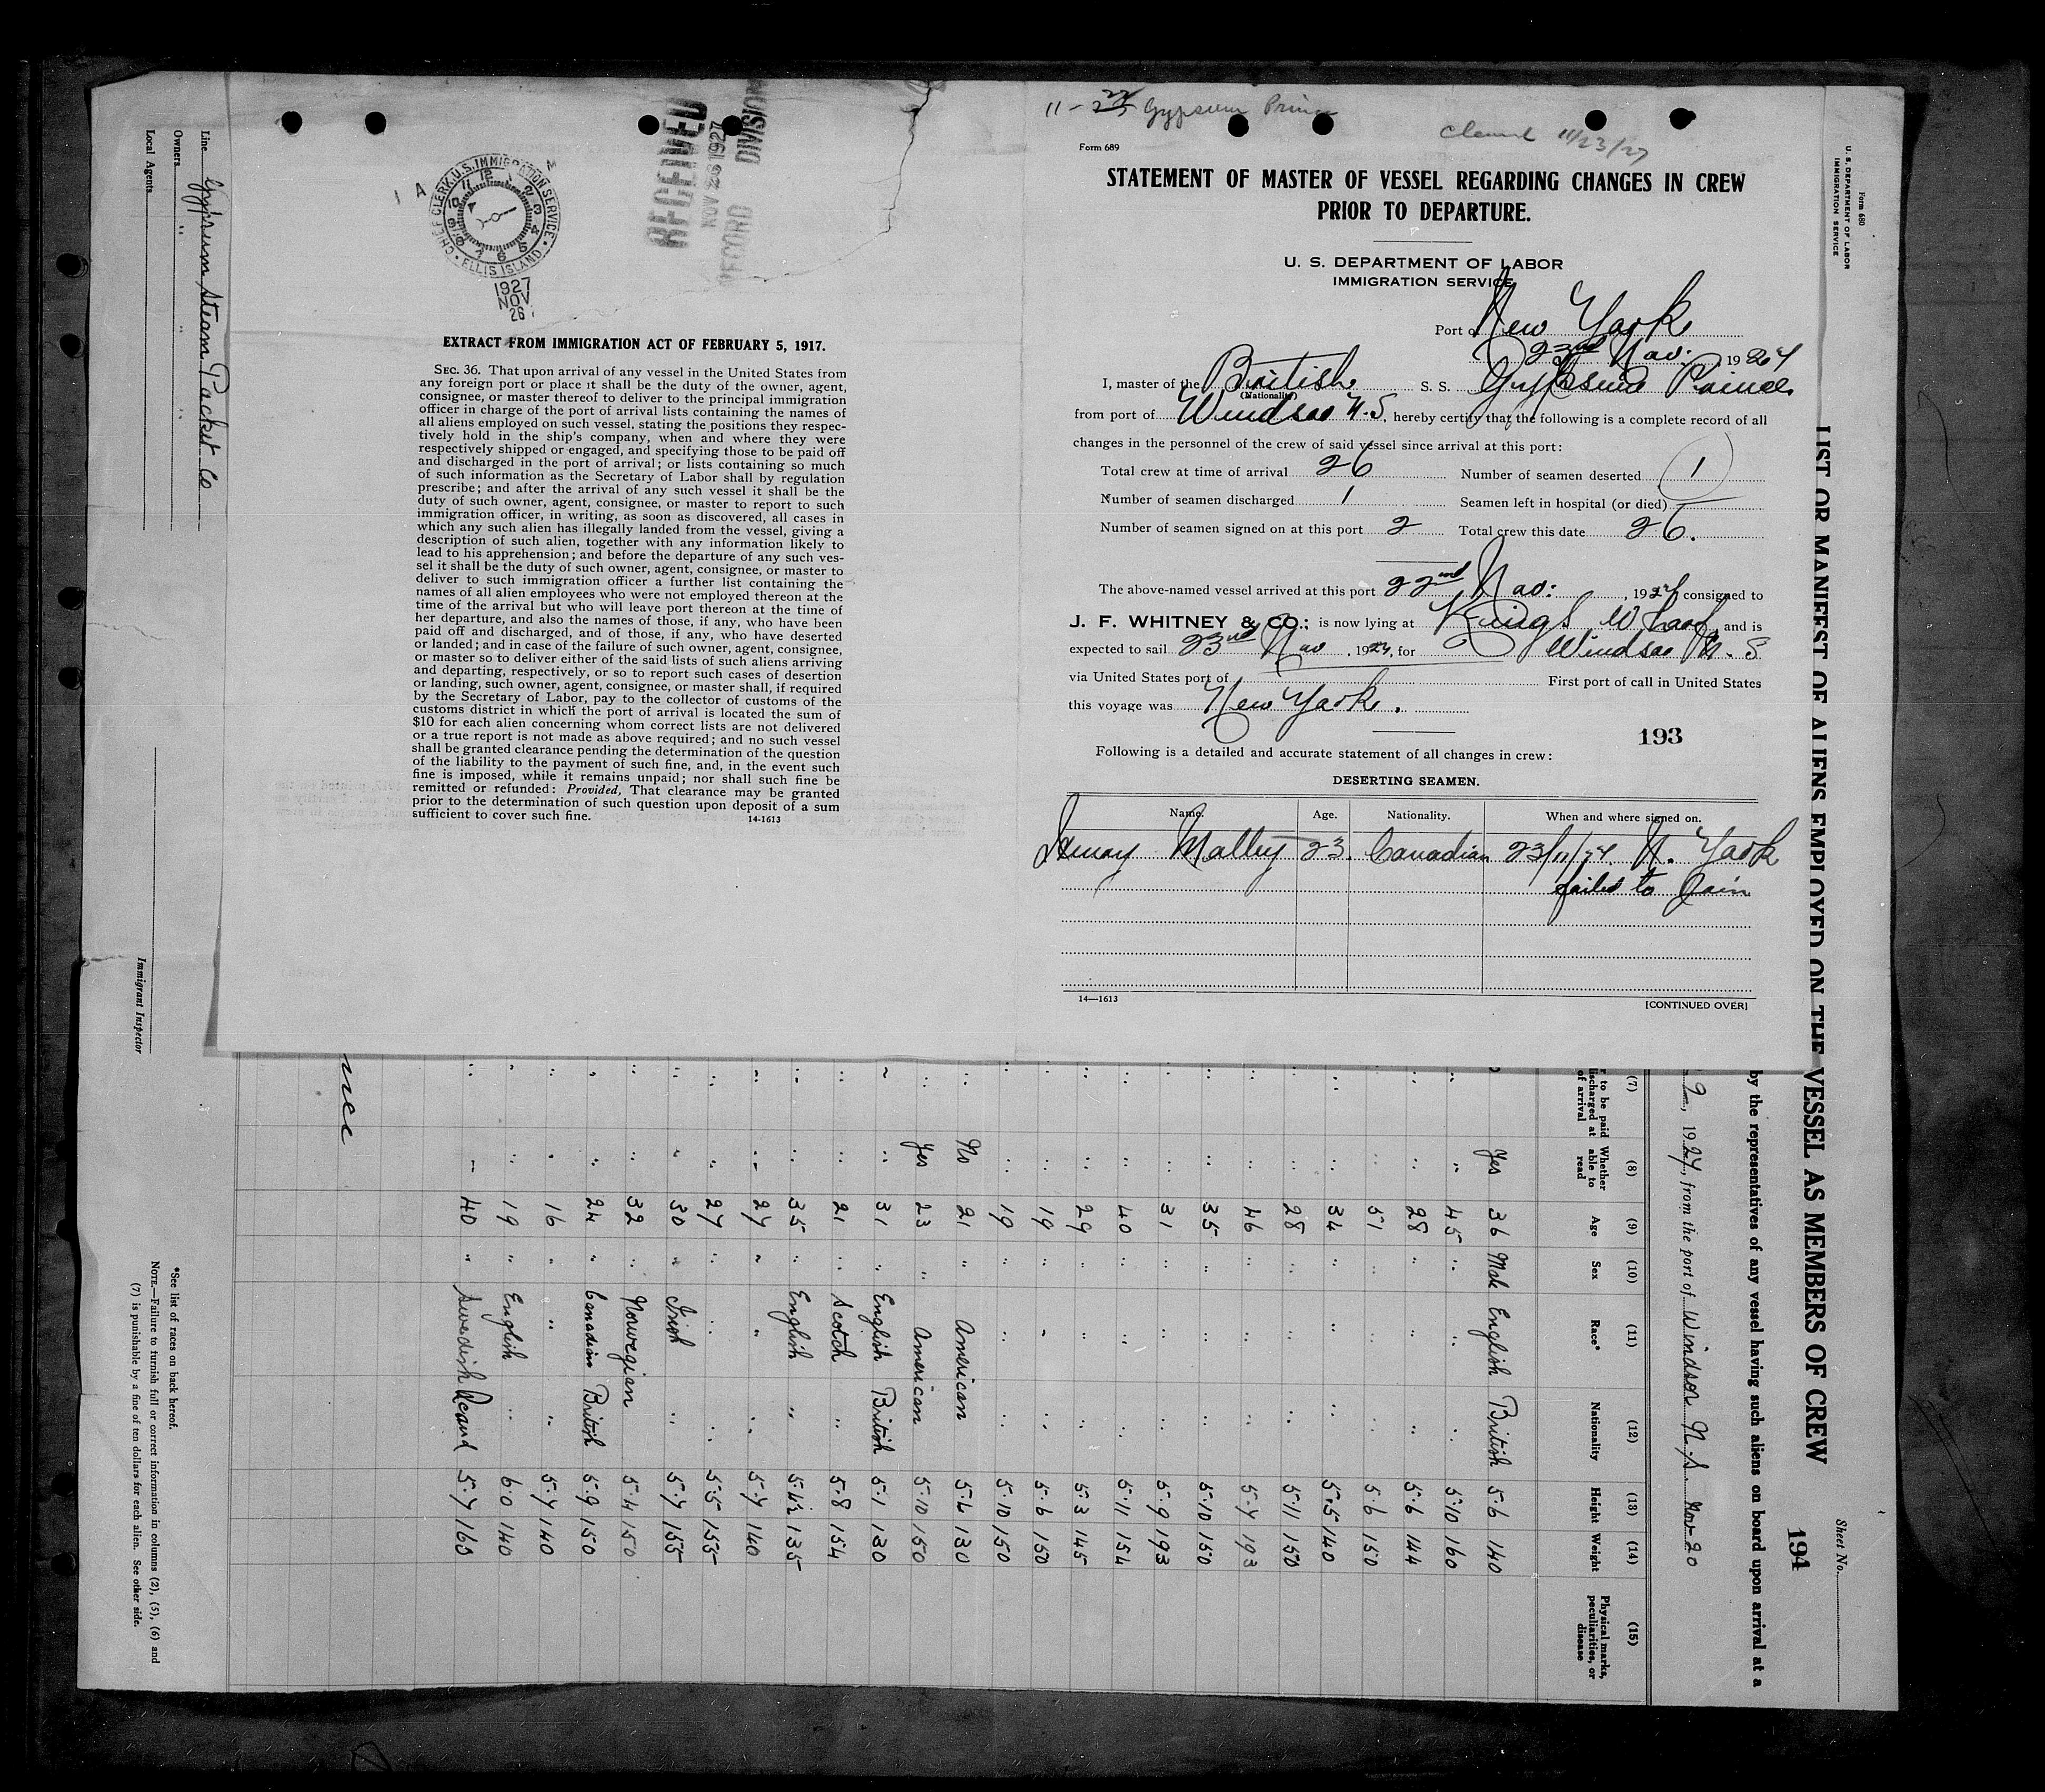 11-22 Gypsum Prince
Cleared 11/23/27
Form 689
STATEMENT OF MASTER OF VESSEL REGARDING CHANGES IN CREW
PRIOR TO DEPARTURE.
U. S. DEPARTMENT OF LABOR
IMMIGRATION SERVICE
Port of New York
23rd Nov. 1927
I, master of the British S. S. Gypsum Prince
(Nationality)
from port of Windsor N.S., hereby certify that the following is a complete record of all
changes in the personnel of the crew of said vessel since arrival at this port:
Total crew at time of arrival 26 Number of seamen deserted 1
Number of seamen discharged 1 Seamen left in hospital (or died)
Number of seamen signed on at this port 2 Total crew this date 26.
The above-named vessel arrived at this port 22nd Nov: , 1927 consigned to
J. F. WHITNEY & CO.; is now lying at Kings Wharf, and is
expected to sail 23rd Nov , 1927, for Windsor N. S
via United States port of First port of call in United States
this voyage was New York.
193
Following is a detailed and accurate statement of all changes in crew:
DESERTING SEAMEN.
Name. Age. Nationality. When and where signed on.
Malley 23. Canadian 23/11/27. N. York
failed to Join
14—1613 [CONTINUED OVER]
CHIEF CLERK, U.S. IMMIGRATION SERVICE
ELLIS ISLAND
1927
NOV
26
RECEIVED
NOV 26 1927
RECORD DIVISION
EXTRACT FROM IMMIGRATION ACT OF FEBRUARY 5, 1917.
SEC. 36. That upon arrival of any vessel in the United States from
any foreign port or place it shall be the duty of the owner, agent,
consignee, or master thereof to deliver to the principal immigration
officer in charge of the port of arrival lists containing the names of
all aliens employed on such vessel, stating the positions they respec-
tively hold in the ship's company, when and where they were
respectively shipped or engaged, and specifying those to be paid off
and discharged in the port of arrival; or lists containing so much
of such information as the Secretary of Labor shall by regulation
prescribe; and after the arrival of any such vessel it shall be the
duty of such owner, agent, consignee, or master to report to such
immigration officer, in writing, as soon as discovered, all cases in
which any such alien has illegally landed from the vessel, giving a
description of such alien, together with any information likely to
lead to his apprehension; and before the departure of any such ves-
sel it shall be the duty of such owner, agent, consignee, or master to
deliver to such immigration officer a further list containing the
names of all alien employees who were not employed thereon at the
time of the arrival but who will leave port thereon at the time of
her departure, and also the names of those, if any, who have been
paid off and discharged, and of those, if any, who have deserted
or landed; and in case of the failure of such owner, agent, consignee,
or master so to deliver either of the said lists of such aliens arriving
and departing, respectively, or so to report such cases of desertion
or landing, such owner, agent, consignee, or master shall, if required
by the Secretary of Labor, pay to the collector of customs of the
customs district in which the port of arrival is located the sum of
$10 for each alien concerning whom correct lists are not delivered
or a true report is not made as above required; and no such vessel
shall be granted clearance pending the determination of the question
of the liability to the payment of such fine, and, in the event such
fine is imposed, while it remains unpaid; nor shall such fine be
remitted or refunded: Provided, That clearance may be granted
prior to the determination of such question upon deposit of a sum
sufficient to cover such fine.
14-1613
Form 680
U. S. DEPARTMENT OF LABOR
IMMIGRATION SERVICE
Sheet No.
194
LIST OR MANIFEST OF ALIENS EMPLOYED ON THE VESSEL AS MEMBERS OF CREW
by the representatives of any vessel having such aliens on board upon arrival at a
, 1927, from the port of Windsor N.S. Nov 20
(7) (8) (9) (10) (11) (12) (13) (14) (15)
r to be paid
ischarged at
of arrival
Whether
able to
read
Age Sex Race* Nationality Height Weight
Physical marks,
peculiarities, or
disease
Yes 36 Male English British 5.6 140
" 45 " " " 5.10 160
" 28 " " " 5.6 144
" 51 " " " 5.6 150
" 34 " " " 5.5 140
" 28 " " " 5.11 150
" 46 " " " 5.7 193
" 35 " " " 5.10 150
" 31 " " " 5.9 193
" 40 " " " 5.11 154
" 29 " " " 5.3 145
" 19 " " " 5.6 150
" 19 " " " 5.10 150
No 21 " American 5.6 130
Yes 23 " American 5.10 150
" 31 " English British 5.1 130
" 21 " Scotch " 5.8 154
" 35 " English " 5.4½ 135
" 27 " " " 5.7 140
" 27 " " " 5.5 155
" 30 " Irish " 5.7 155
" 32 " Norwegian 5.4 150
" 24 " Canadian British 5.9 150
" 16 " " " 5.7 140
" 19 " English " 6.0 140
" 40 " Swedish 5.7 160
Line Gypsum Steam Packet Co
Owners " " "
Local Agents
Immigrant Inspector
*See list of races on back hereof.
NOTE.—Failure to furnish full or correct information in columns (2), (5), (6) and
(7) is punishable by a fine of ten dollars for each alien. See other side.